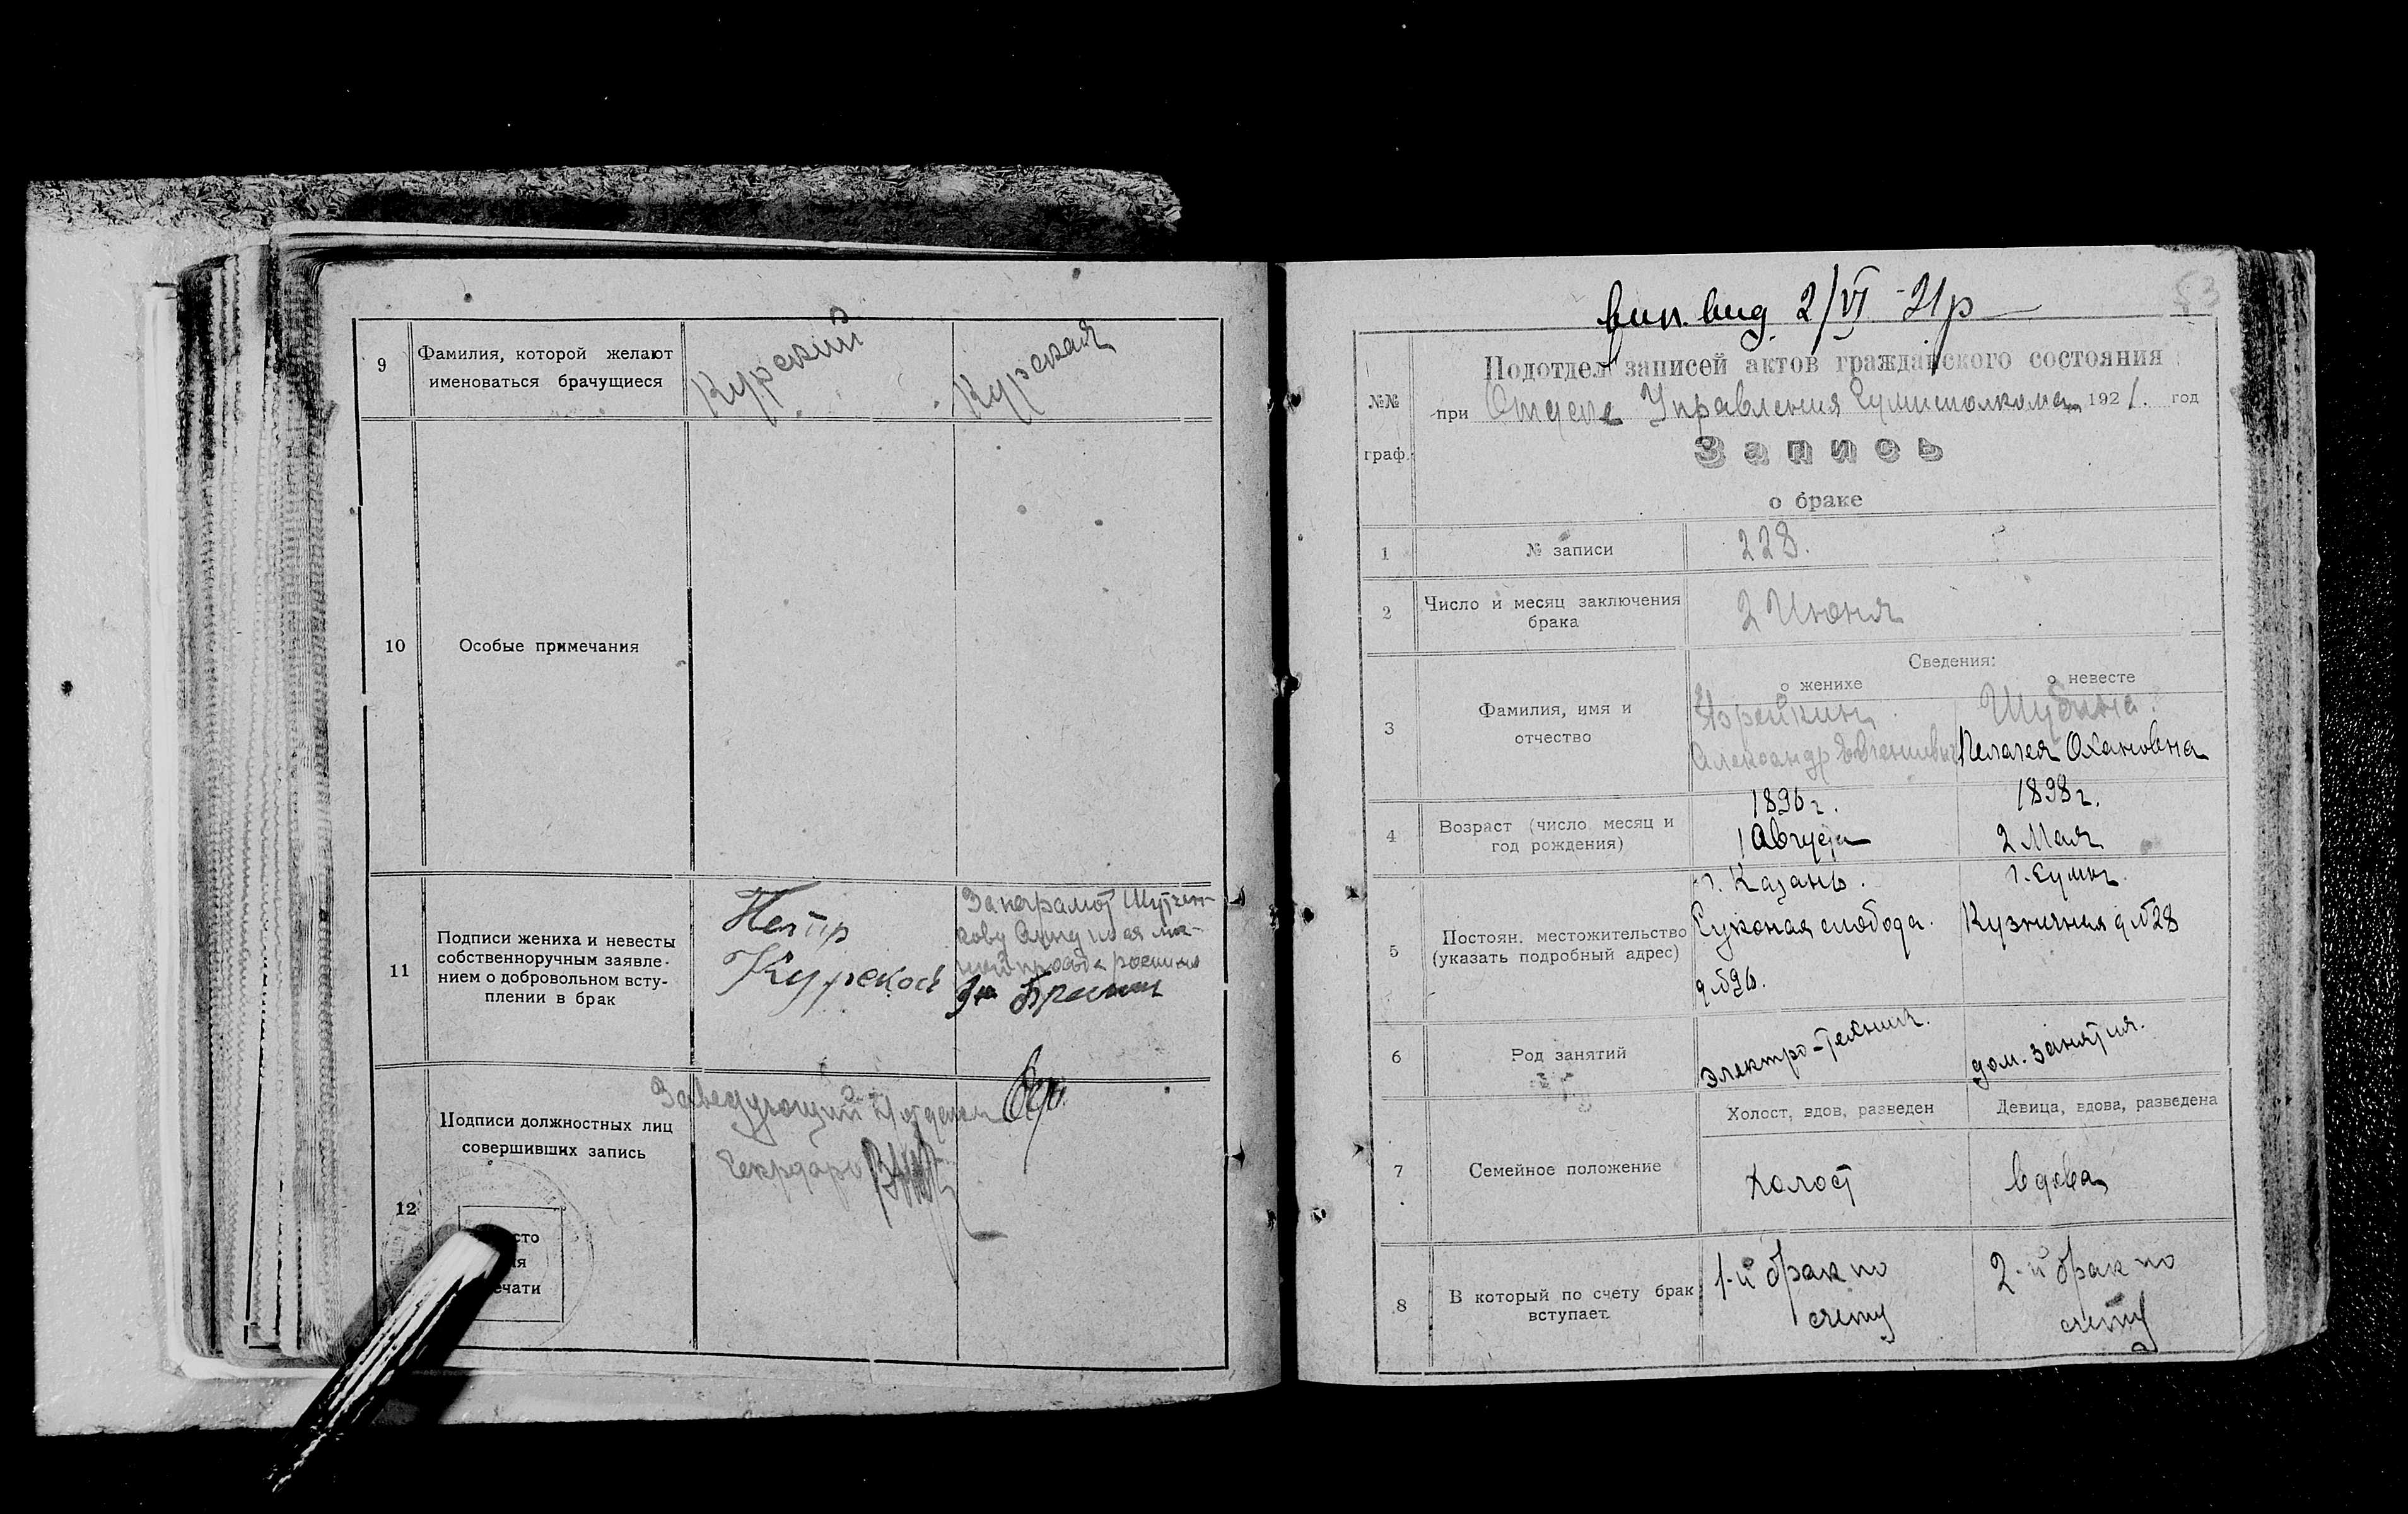 9
Фамилия, которой желают
именоваться брачущиеся
Курский
Курская
10
Особые примечания
11
Подписи жениха и невесты
собственноручным заявле-
нием о добровольном всту-
плении в брак
Петр
Курской
За неграмот
12
Подписи должностных лиц
совершивших запись
Заведующий П/отделом
Секретарь
вип. вид. 2/VI-21р
53
№№
граф.
Подотдел записей актов гражданского состояния
при Отделе Управления 1921. год
Запись
о браке
1
№ записи
228.
2
Число и месяц заключения
брака
2 Июня
Сведения:
о женихе
о невесте
3
Фамилия, имя и
отчество
Александр Евгениевич
Пелагея
4
Возраст (число месяц и
год рождения)
1896 г.
1 Августа
1898 г.
2 Мая
5
Постоян. местожительство
(указать подробный адрес)
г. Казань.
Суконая слобода.
д №96.
г. Сумы
Кузничная д №28
6
Род занятий
электро-техник.
дом. занятия.
7
Семейное положение
Холост, вдов, разведен
Девица, вдова, разведена
холост
вдова
8
В который по счету брак
вступает.
1-й брак по
счету
2-й брак по
счету